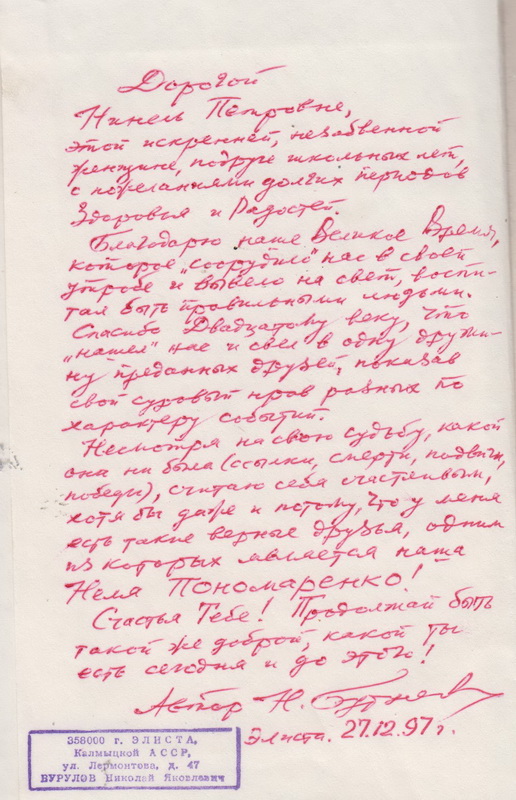 Дорогой
Нинель Петровне,
этой искренней, незабвенной
женщине, подруге школьных лет,
с пожеланиями долгих периодов
Здоровья и Радостей.
Благодарю наше Великое Время,
которое „соорудило" нас в своей
утробе и вывело на свет, воспи-
тая быть правильными людьми.
Спасибо Двадцатому веку, что
„нашел" нас и свел в одну дружи-
ну преданных друзей, показав
свой суровый нрав разных по
характеру событий.
Несмотря на свою судьбу, какой
она ни была (ссылки, смерти, подвиги,
победы), считаю себя счастливым,
хотя бы даже и потому, что у меня
есть такие верные друзья, одним
из которых является наша
Неля Пономаренко!
Счастья Тебе! Продолжай быть
такой же доброй, какой ты
есть сегодня и до этого!
Автор Н.
Элиста. 27.12.97 г.
358000 г. ЭЛИСТА,
Калмыцкой АССР,
ул. Лермонтова, д. 47
БУРУЛОВ Николай Яковлевич